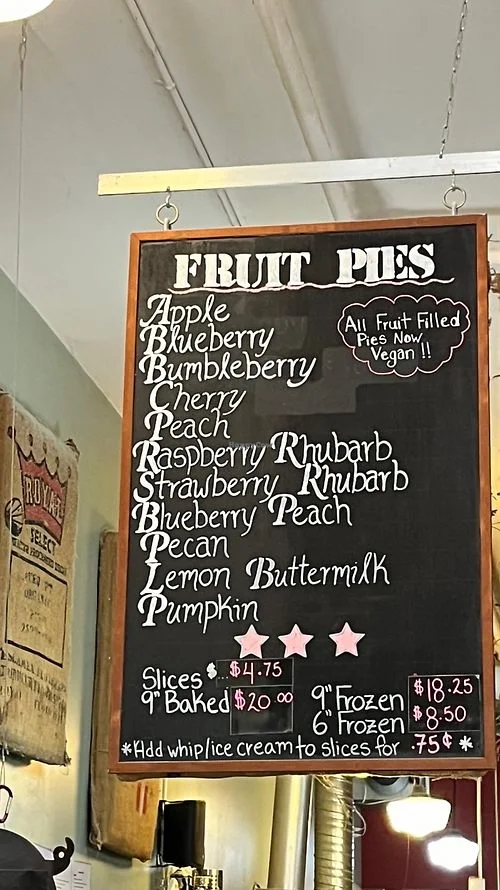 FRUIT PIES
Apple
Blueberry
Bumbleberry
Cherry
Peach
Raspberry Rhubarb
Strawberry Rhubarb
Blueberry Peach
Pecan
Lemon Buttermilk
Pumpkin
All Fruit Filled
Pies Now
Vegan !!
Slices $.. $4.75
9" Baked $20.00
9" Frozen $18.25
6" Frozen $8.50
*Add whip/ice cream to slices for .75¢ *
ROYAL
SELECT